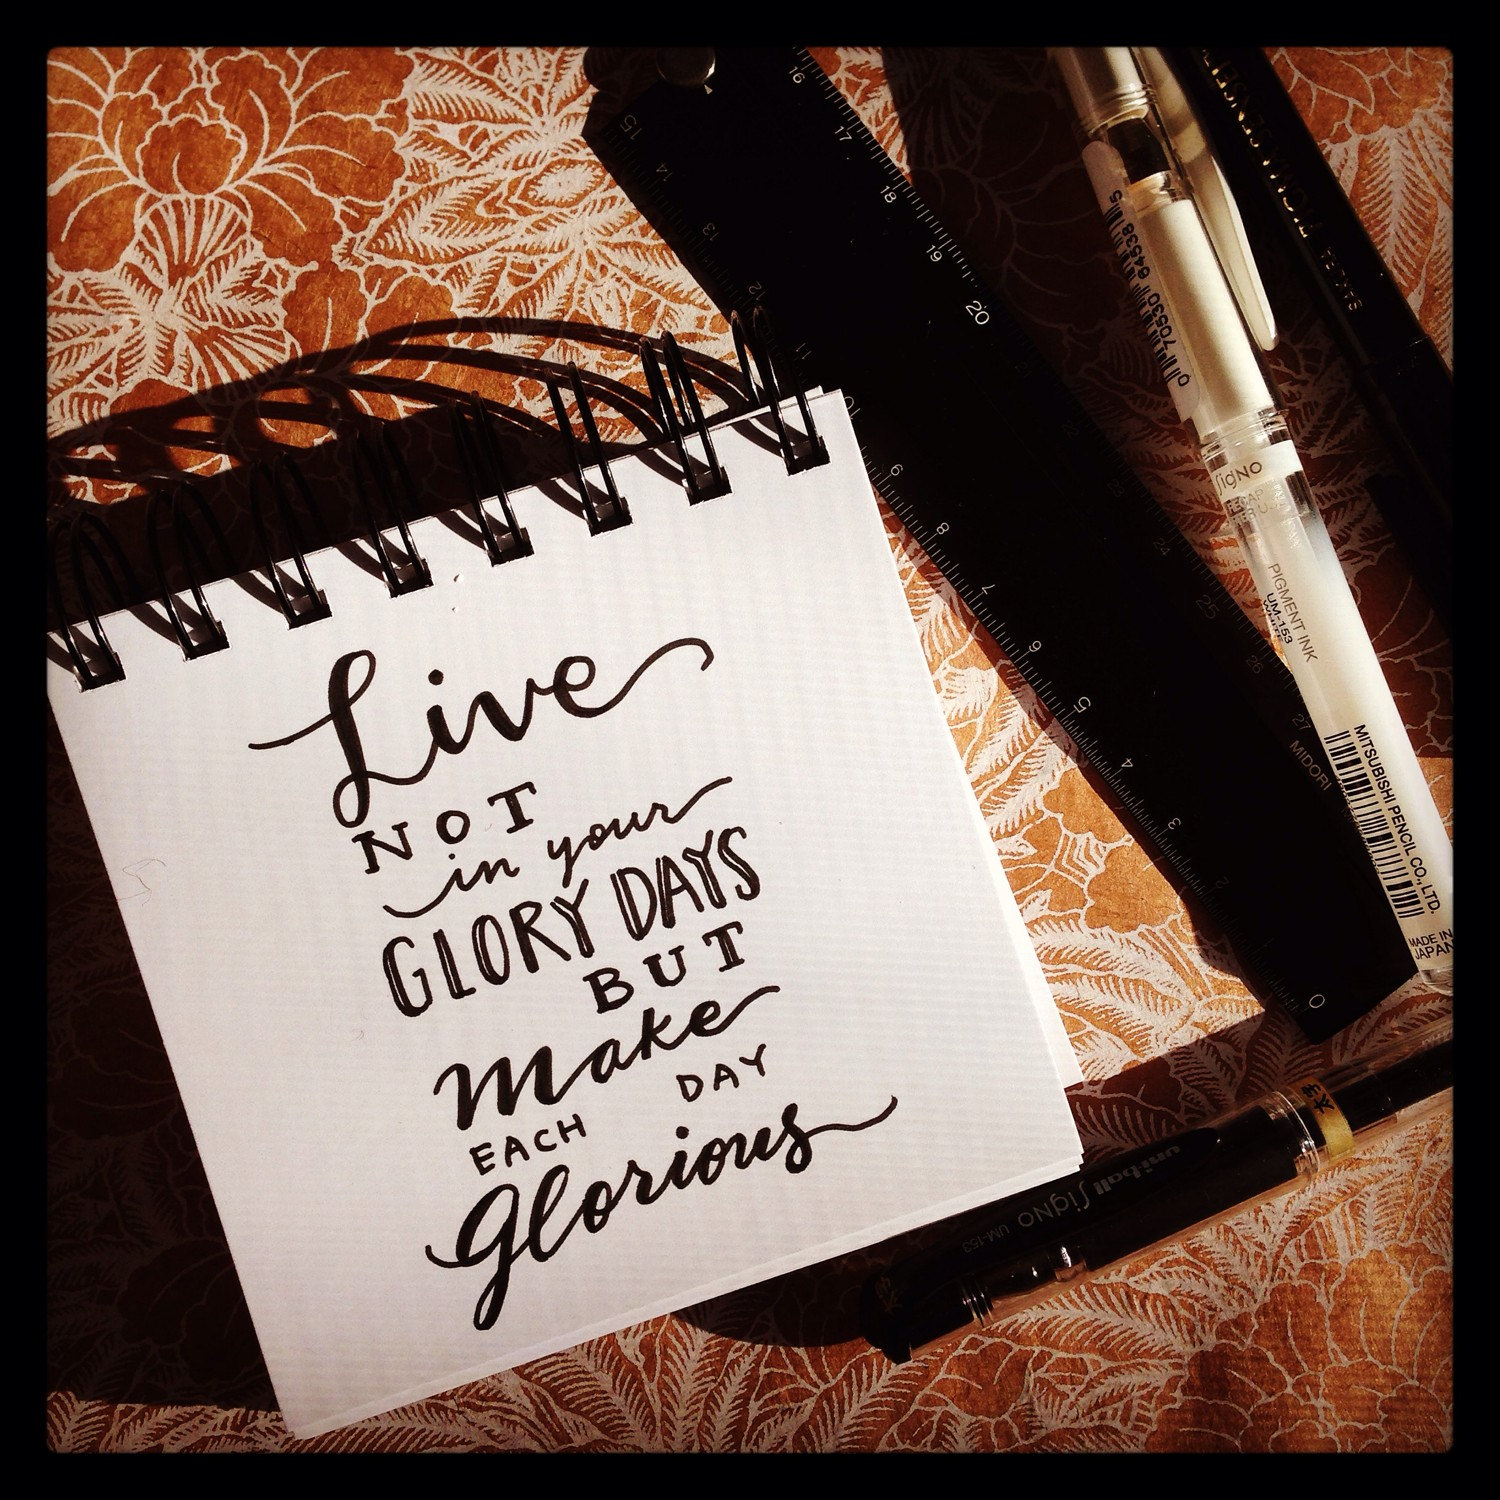 Live
NOT
in your
GLORY DAYS
BUT
Make
EACH DAY
Glorious
15
14
13
12
11
10
9
8
7
6
5
4
3
2
1
0
16
17
18
19
20
21
22
23
24
25
26
27
MIDORI
70530 64538 5
SigNO
PIGMENT INK
UM-153
MITSUBISHI PENCIL CO., LTD.
MADE IN
JAPAN
uni-ball SigNO UM-153
太字